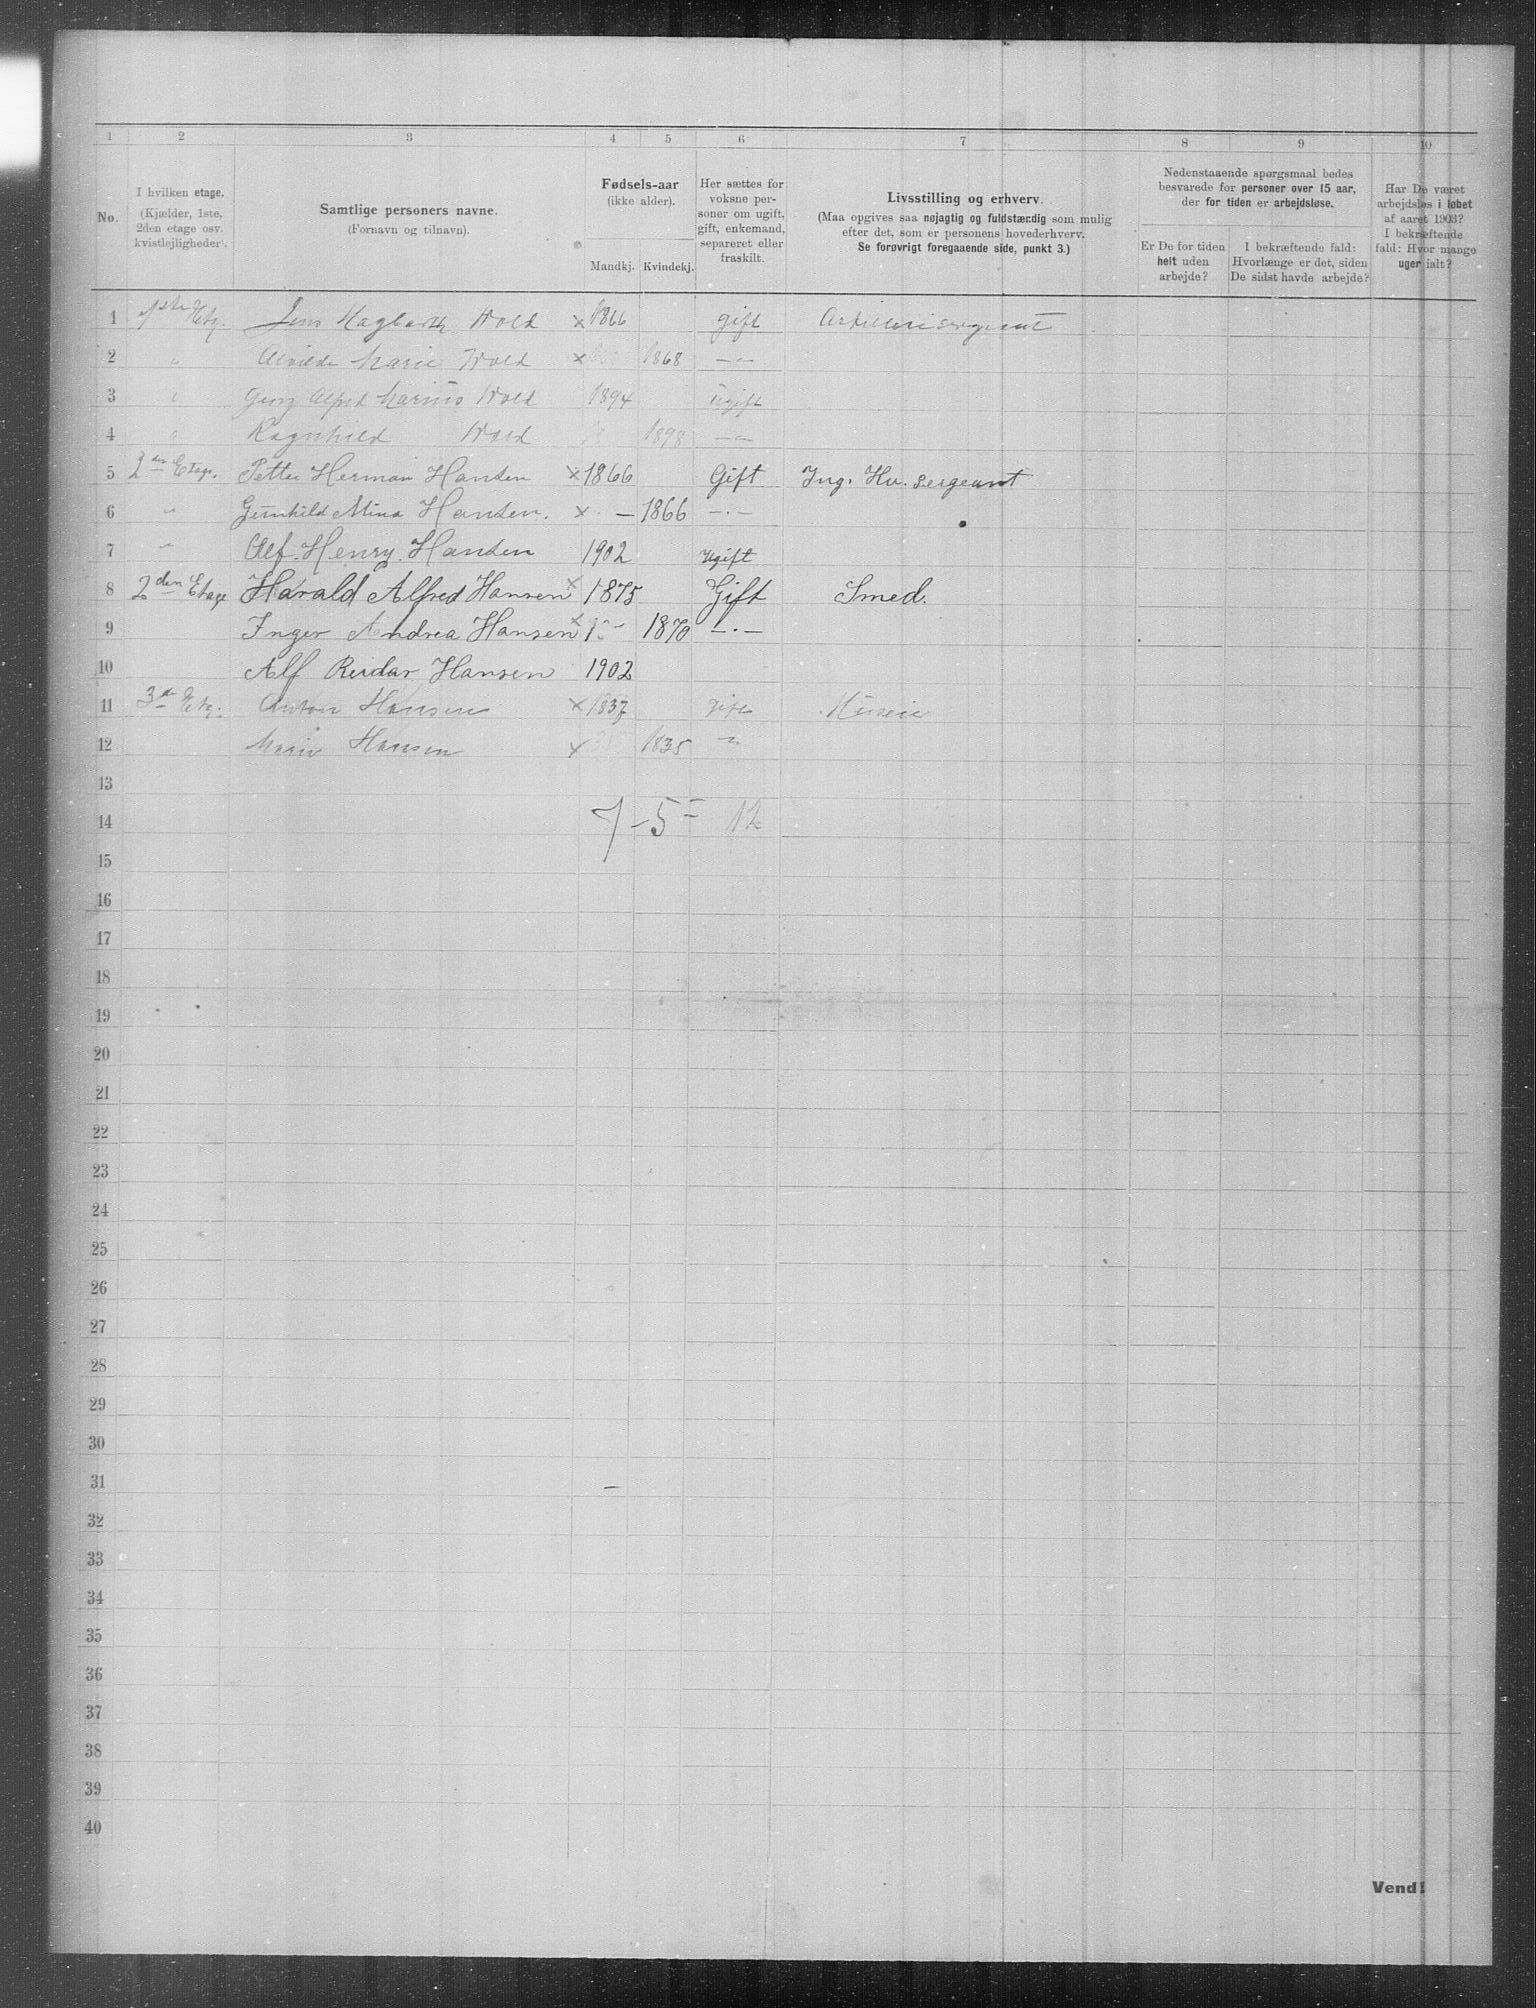 1 2 3 4 5 6 7 8 9 10
No.
I hvilken etage.
(Kjælder, 1ste,
2den etage osv.
kvistlejligheder).
Samtlige personers navne.
(Fornavn og tilnavn).
Fødsels-aar
(ikke alder).
Mandkj. Kvindekj.
Her sættes for
voksne per-
soner om ugift,
gift, enkemand,
separeret eller
fraskilt.
Livsstilling og erhverv.
(Maa opgives saa nøjagtig og fuldstændig som mulig
efter det, som er personens hovederhverv.
Se forøvrigt foregaaende side, punkt 3.)
Nedenstaaende spørgsmaal bedes
besvarede for personer over 15 aar,
der for tiden er arbejdsløse.
Er De for tiden
helt uden
arbejde?
I bekræftende fald:
Hvorlænge er det, siden
De sidst havde arbejde?
Har De været
arbejdsløs i løbet
af aaret 1903?
I bekræftende
fald: Hvor mange
uger ialt?
1 1ste Etg. Jens Hagbarth Wold × 1866 gift Artillerisergeant
2 " Alvilde Marie Wold × 1868 —"—
3 " Georg Alfred Marius Wold 1894 Ugift
4 " Ragnhild Wold 1898 —"—
5 2den Etage. Petter Herman Hansen × 1866 Gift Ing. Hv. sergeant
6 " Gunhild Mina Hansen. × — 1866 —·—
7 " Alf. Henry. Hansen 1902 Ugift
8 2den Etage Harald Alfred Hansen × 1875 Gift Smed.
9 Inger Andrea Hansen × 1870 —·—
10 Alf Reidar Hansen 1902
11 3die Etg. Anton Hansen × 1837 gift
12 Marie Hansen × 1835 "
13
14 7 – 5 = 12
15
16
17
18
19
20
21
22
23
24
25
26
27
28
29
30
31
32
33
34
35
36
37
38
39
40
Vend!